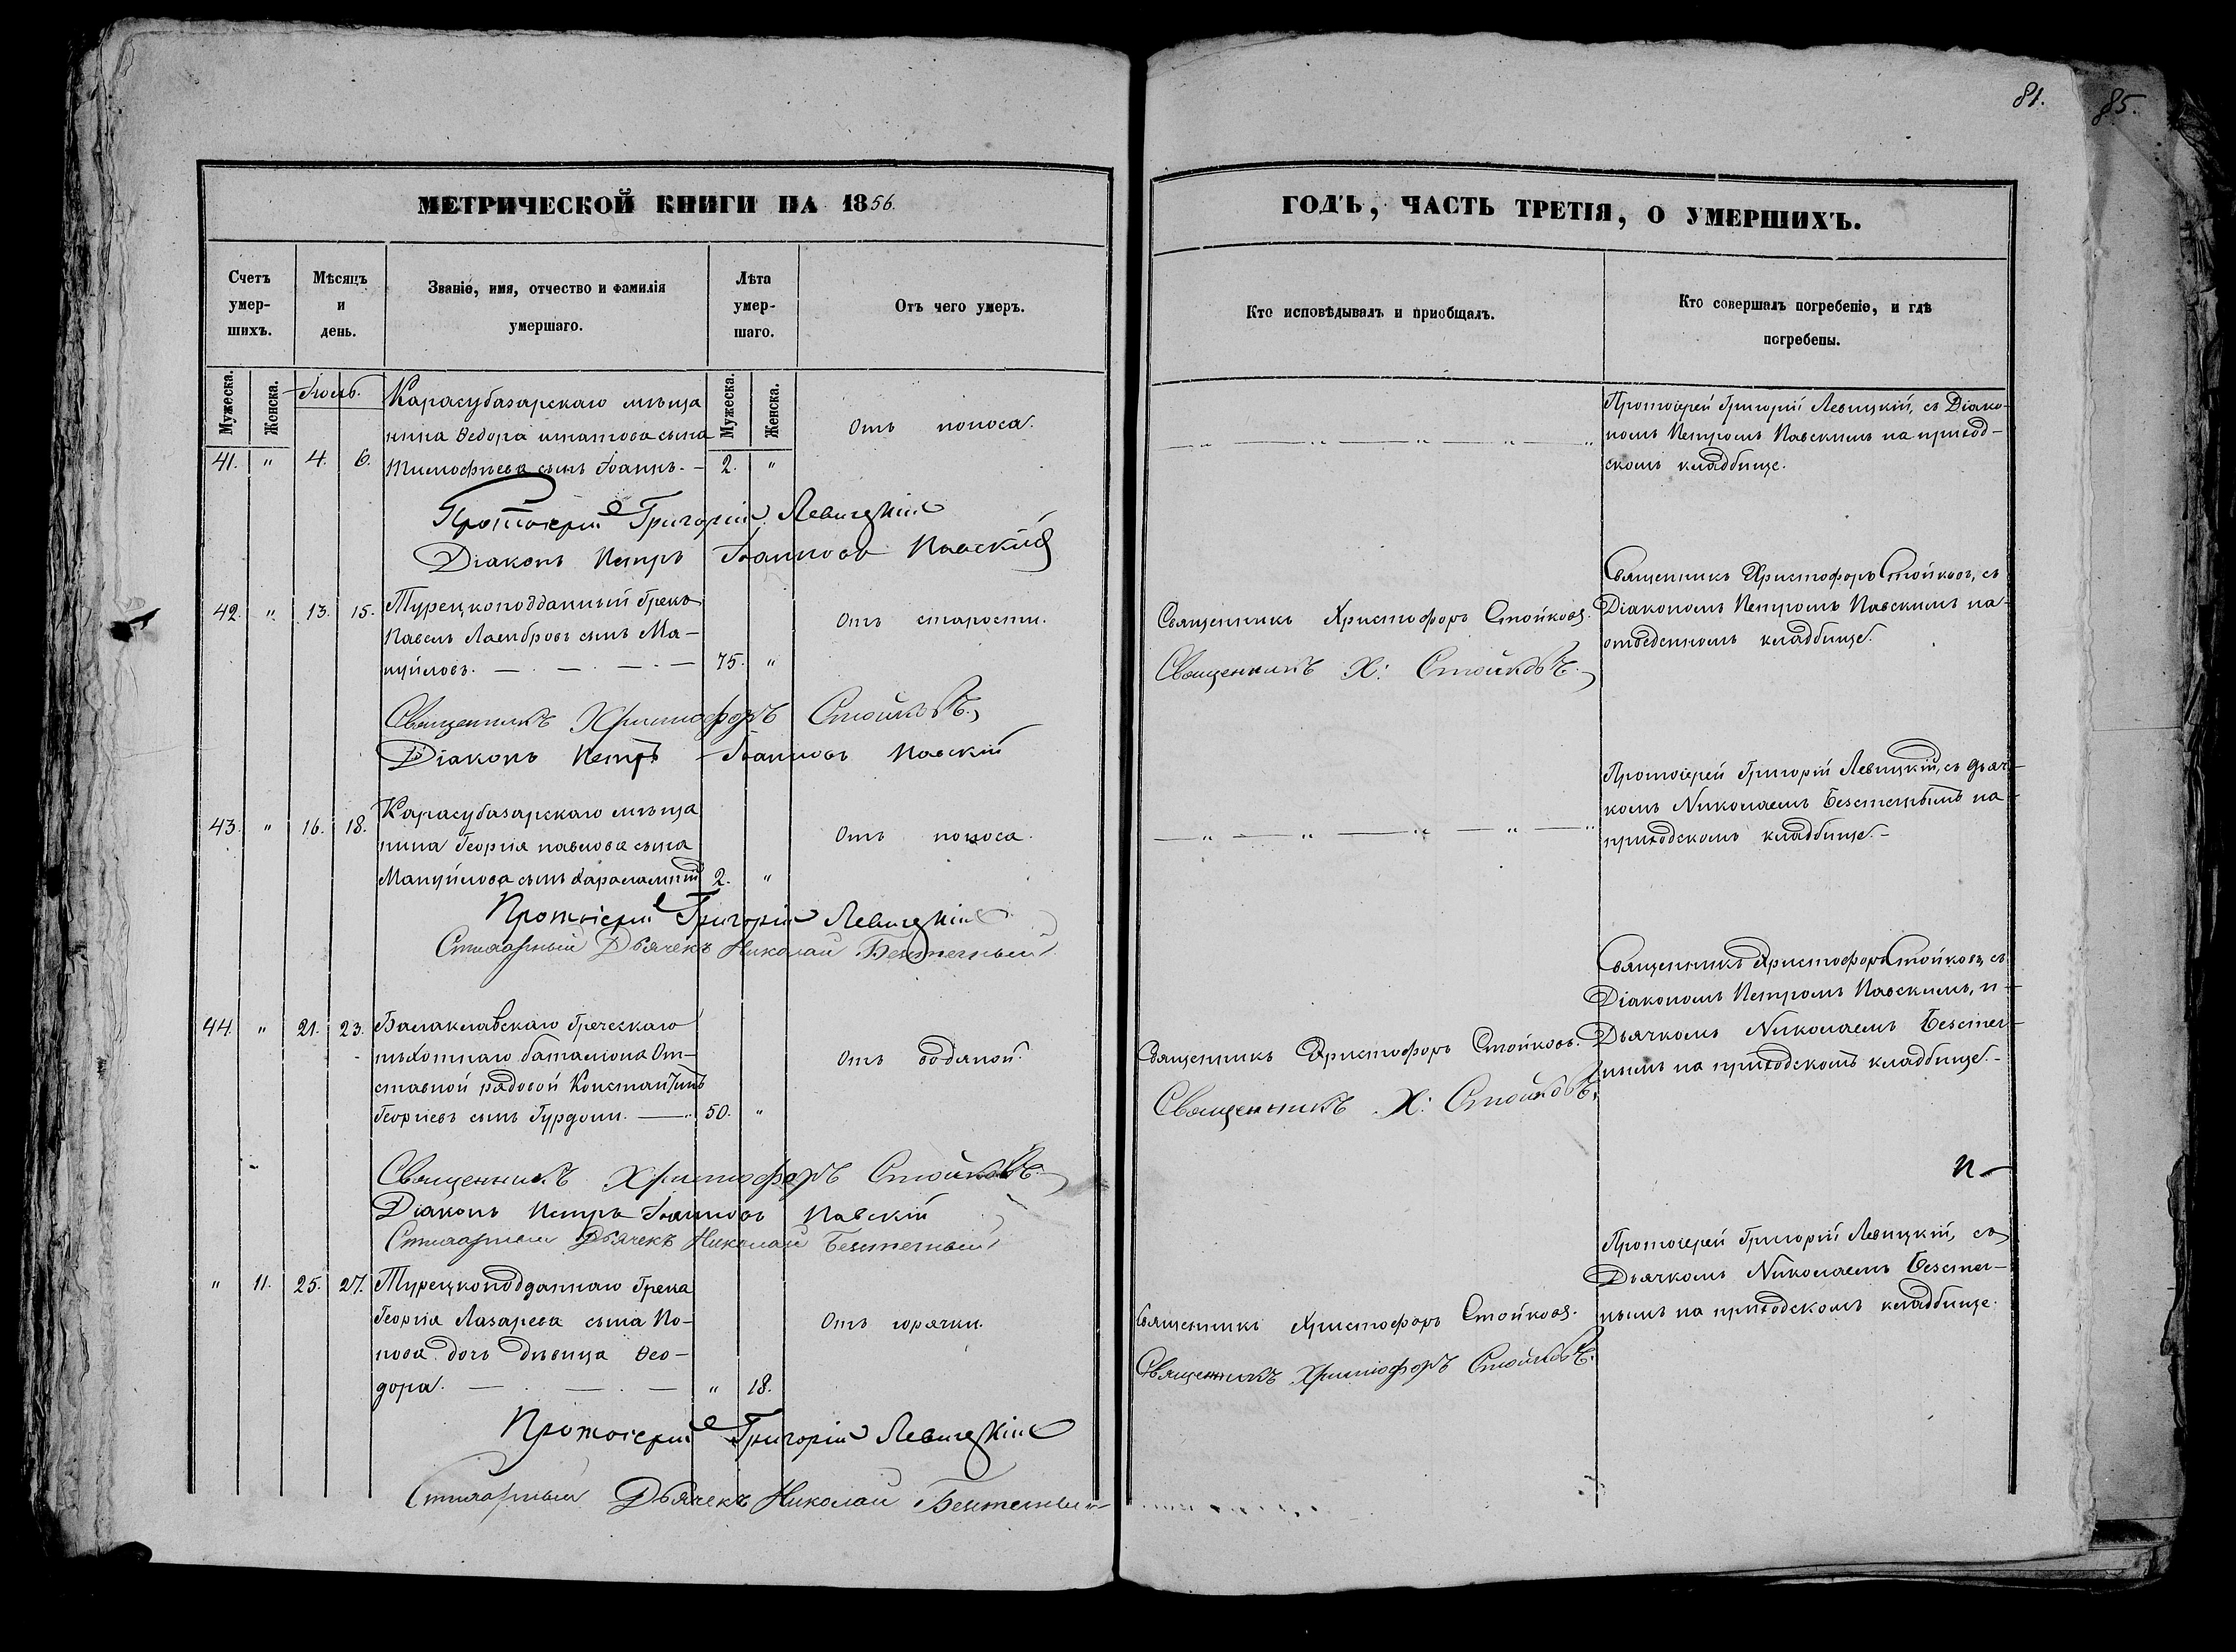 81.
85.
МЕТРИЧЕСКОЙ КНИГИ НА 1856.
ГОДЪ, ЧАСТЬ ТРЕТІЯ, О УМЕРШИХЪ.
Счетъ умер-шихъ.
Мѣсяцъ и день.
Званіе, имя, отчество и фамилія
умершаго.
Лѣта умер-шаго.
Отъ чего умеръ.
Кто исповѣдывалъ и приобщалъ.
Кто совершалъ погребеніе, и гдѣ
погребены.
Мужеска.
Женска.
Мужеска.
Женска.
Карасубазарскаго мѣща
нина Ѳедора
41. " 4. 6. Тимофѣева сынъ Іоаннъ. 2. "
Отъ поноса.
Протоіерей Григорій Левицкій, съ Діако-
номъ Петромъ Павскимъ на приход-
скомъ кладбище.
Протоіерей Григорій Левицкій
Діаконъ Петръ Іоанновъ Павскій
42. " 13. 15. Турецкоподданный Грекъ
Павелъ сынъ Ма-
нуйловъ. 75. "
Отъ старости.
Священникъ Христофоръ Стойковъ.
Священникъ Х: Стойковъ.
Священникъ Христофоръ Стойковъ, съ
Діакономъ Петромъ Павскимъ на
кладбище.
Священникъ Христофоръ Стойковъ.
Діаконъ Петръ Іоанновъ Павскій
Карасубазарскаго мѣща
43. " 16. 18. нина Георгія павлова сына
Мануйлова сынъ Харалампій 2. "
Отъ поноса.
Протоіерей Григорій Левицкій, съ дьяч-
комъ Николаемъ на
приходскомъ кладбище.-
Протоіерей Григорій Левицкій
Стихарный Дьячекъ Николай
44. " 21. 23. Балаклавскаго Греческаго
пѣхотнаго баталіона От-
ставной рядовой Константинъ
Георгіевъ сынъ 50. "
Отъ водяной.
Священникъ Христофоръ Стойковъ.
Священникъ Х: Стойковъ.
Священникъ Христофоръ Стойковъ, съ
Діакономъ Петромъ Павскимъ, и
Дьячкомъ Николаемъ
на приходскомъ кладбище.-
Священникъ Христофоръ Стойковъ.
Діаконъ Петръ Іоанновъ Павскій
Стихарный Дьячекъ Николай
" 11. 25. 27. Турецкоподданнаго Грека
Георгія Лазарева сына По-
пова дочь дѣвица Ѳео-
дора. " 18.
Отъ горячки.
Священникъ Христофоръ Стойковъ.
Священникъ Христофоръ Стойковъ.
Протоіерей Григорій Левицкій, съ
Дьячкомъ Николаемъ
на приходскомъ кладбище.
Протоіерей Григорій Левицкій
Стихарный Дьячекъ Николай